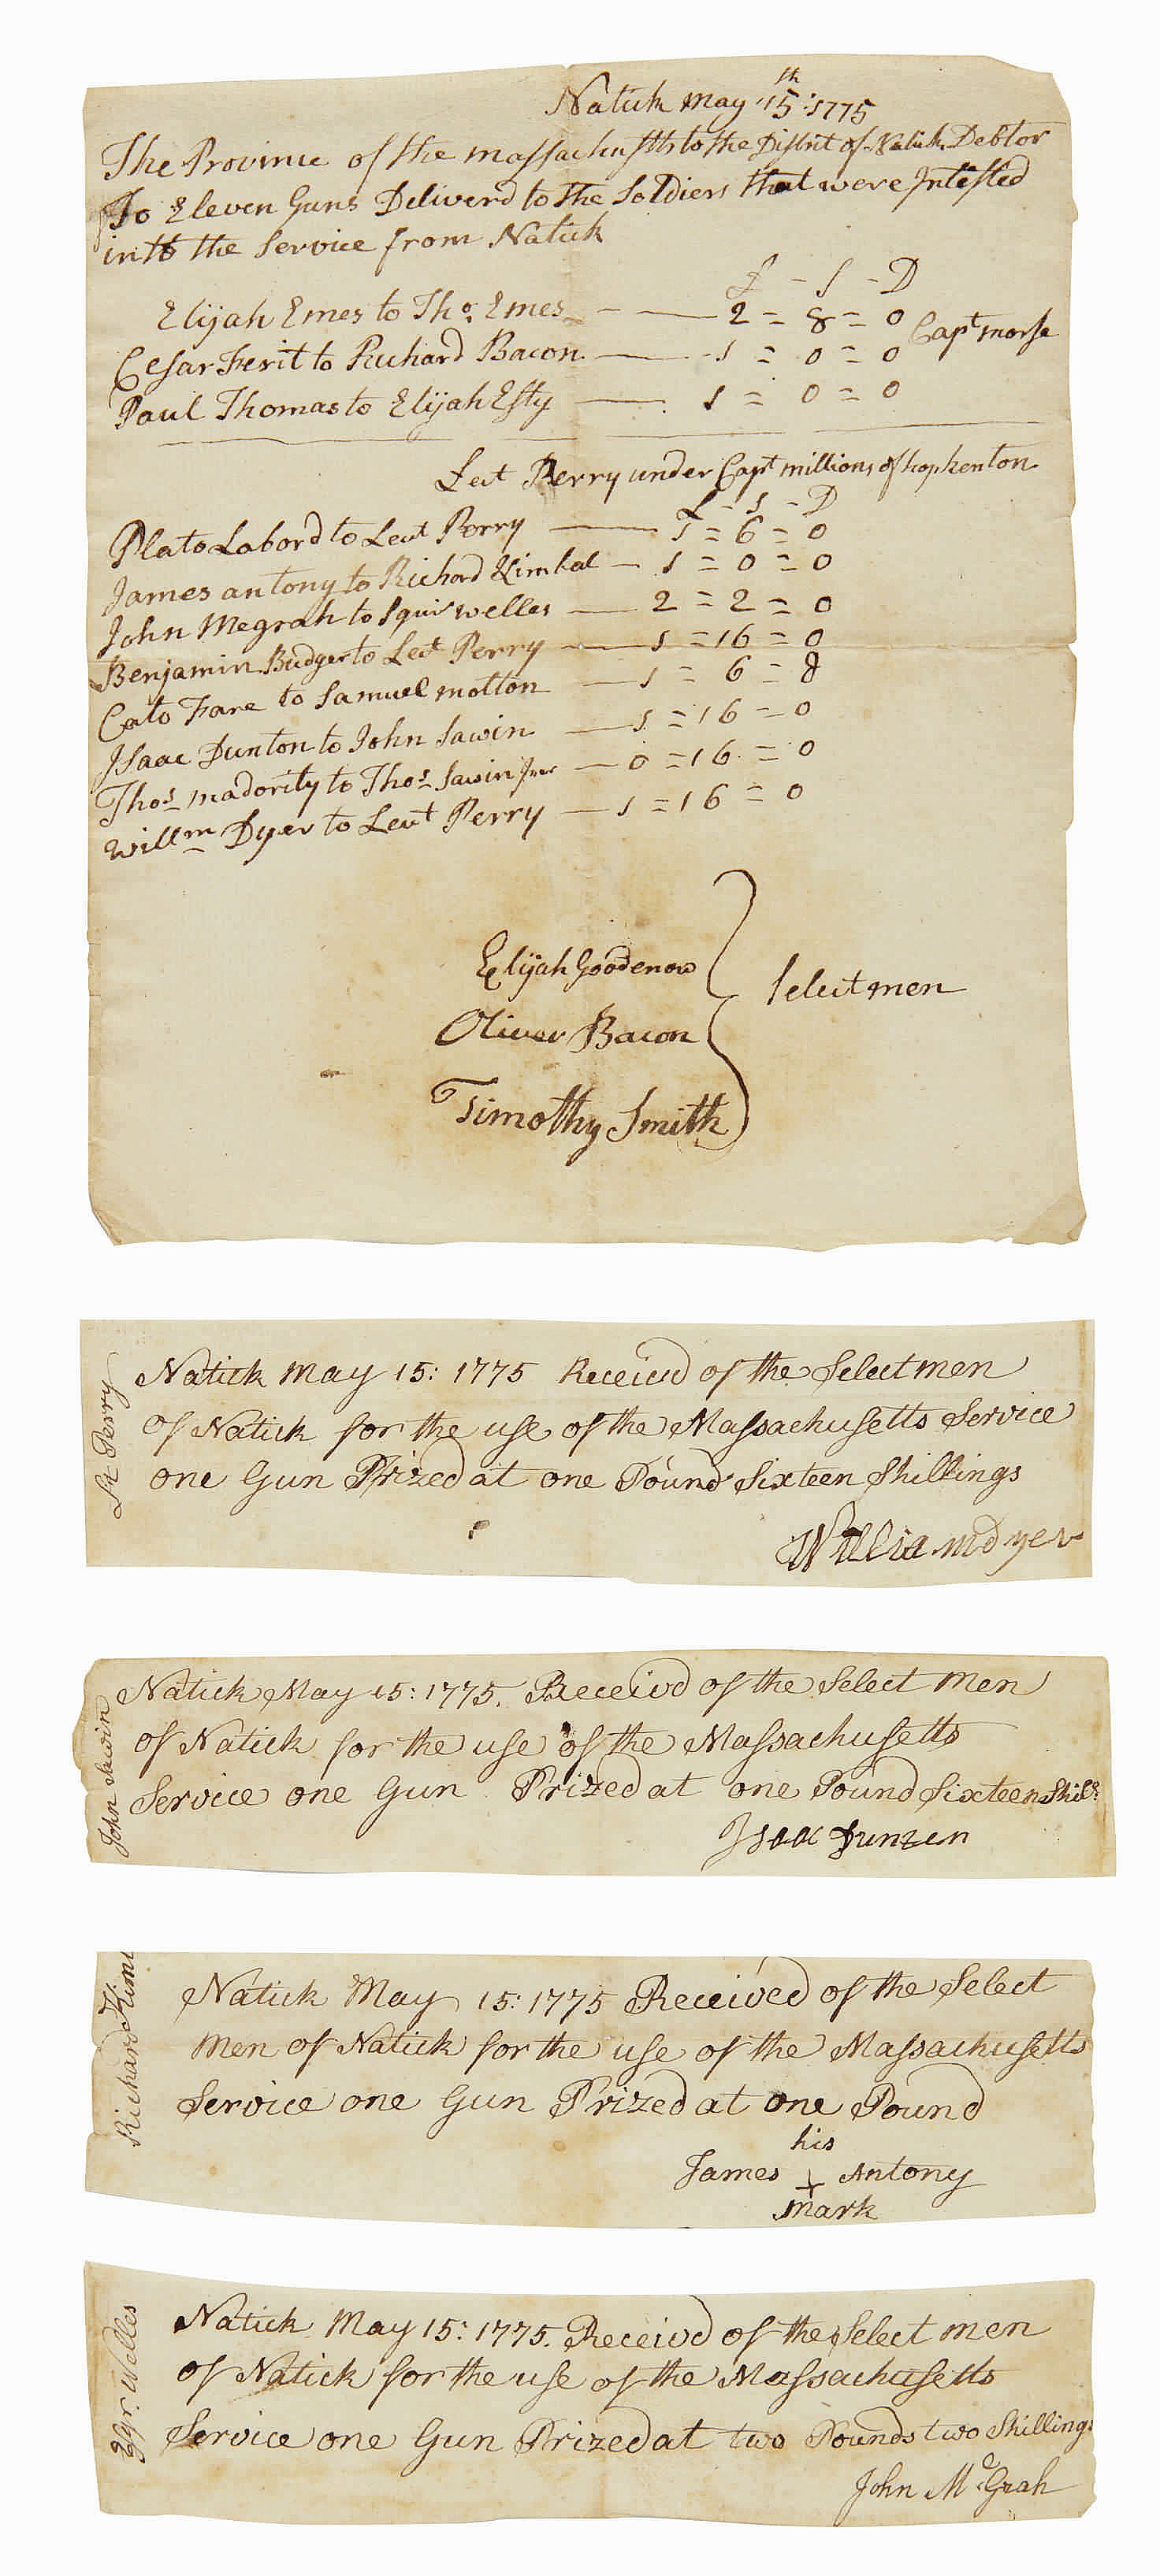 Natick May 15th: 1775
The Province of the massachustts to the District of Natick Debtor
To Eleven Guns Deliverd to the Soldiers that were Inlisted
into the Service from Natick
£ - S - D
Elijah Emes to Tho: Emes — 2 = 8 = 0
Capt morse
Cesar Ferit to Richard Bacon — 1 = 0 = 0
Paul Thomas to Elijah Esty — 1 = 0 = 0
Leut Perry under Capt millions of hopkenton
£ - S - D
Plato Labord to Leut Perry — 1 = 6 = 0
James antony to Richard Kimbal — 1 = 0 = 0
John Megrah to Squir welles — 2 = 2 = 0
Benjamin Budger to Leut Perry — 1 = 16 = 0
Cato Fare to Samuel motton — 1 = 6 = 8
Isaac Dunton to John Sawin — 1 = 16 = 0
Thos madority to Thos Sawin Jner — 0 = 16 = 0
Willm Dyer to Leut Perry — 1 = 16 = 0
Elijah Goodenow
Oliver Bacon
Timothy Smith
Selectmen
Lt Perry
Natick May 15: 1775 Received of the Selectmen
of Natick for the use of the Massachusetts Service
one Gun Prized at one Pound Sixteen Shillings
William dyer
John Sawin
Natick May 15: 1775. Receivd of the Select Men
of Natick for the use of the Massachusetts
Service one Gun Prized at one Pound Sixteen Shills
Isaac Dunten
Richard Kim
Natick May 15: 1775 Received of the Select
Men of Natick for the use of the Massachusetts
Service one Gun Prized at one Pound
his
James + Antony
mark
Esqr. Welles
Natick May 15: 1775. Receivd of the Select men
of Natick for the use of the Massachusetts
Service one Gun Prized at two Pounds two Shillings
John McGrah